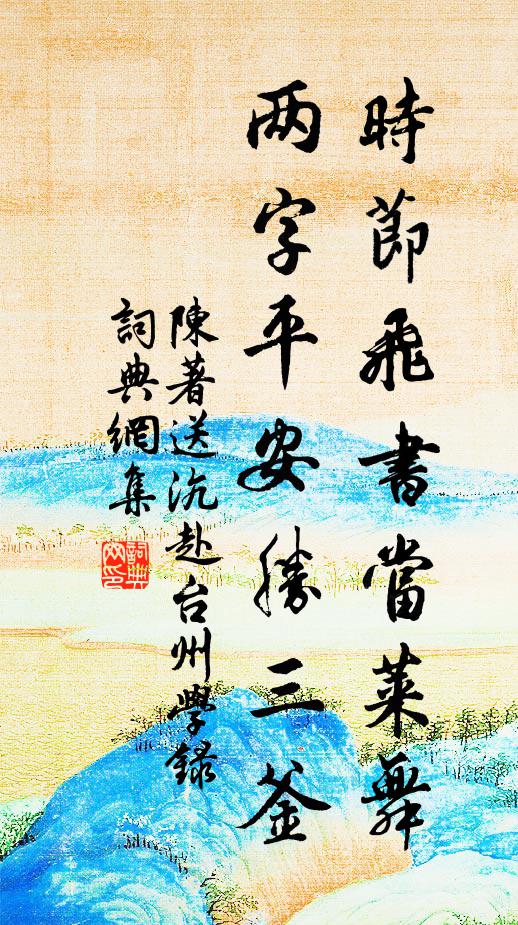 時節飛書當萊舞
两字平安勝三釜
陳著送沆赴台州學録
詞典網集
詞典網印